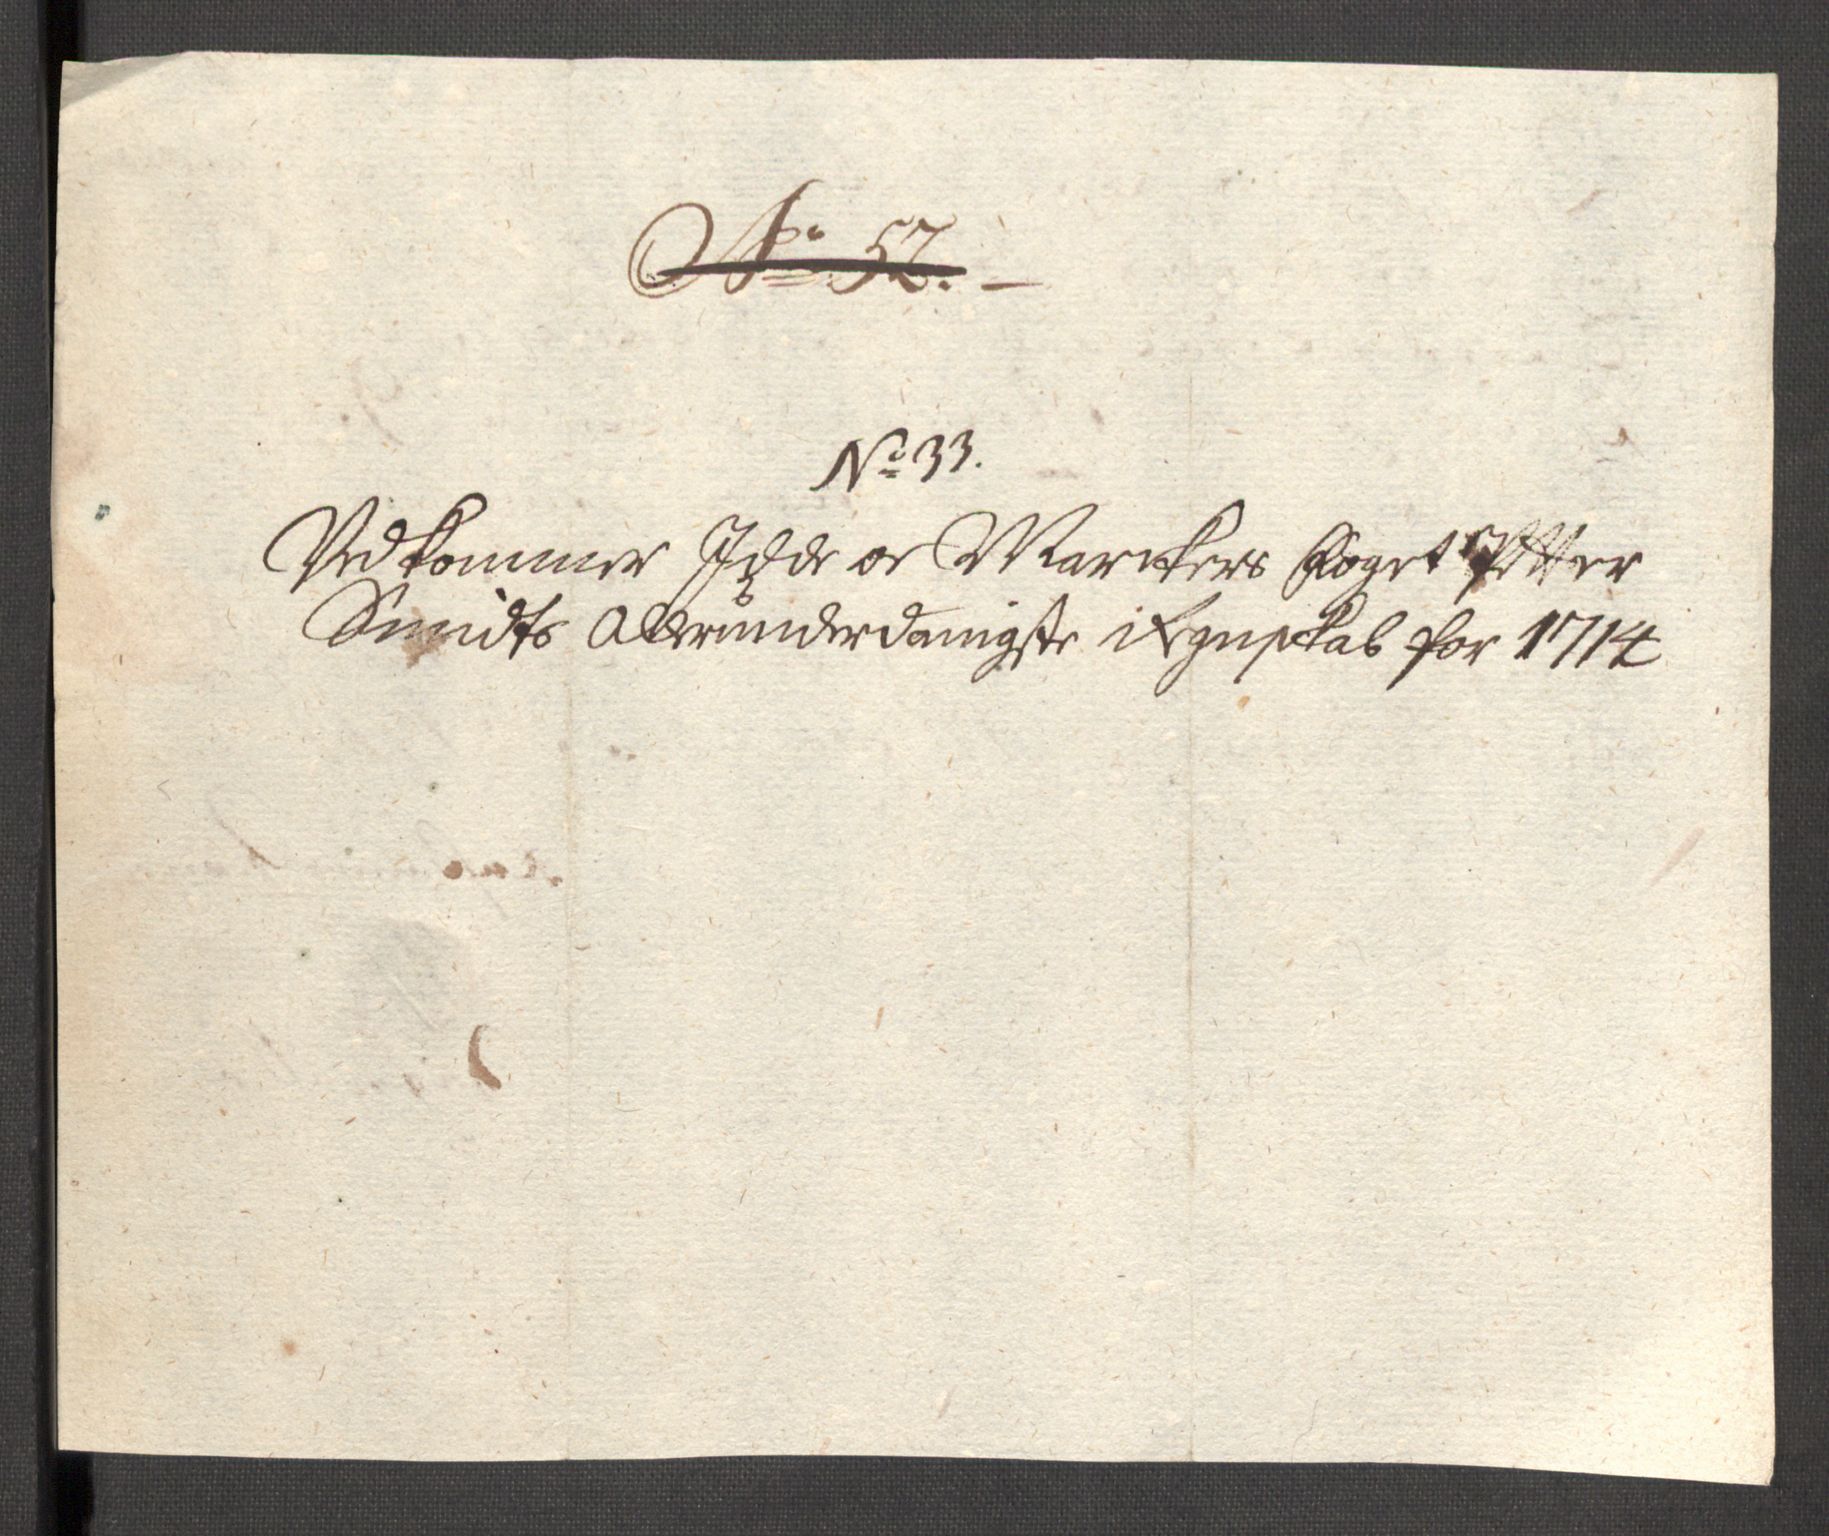 No. 52.
No 33.
Vedkommer Idde oc Marckers Foget Petter
Smidts Allerunderdanigste Regnskab for 1714